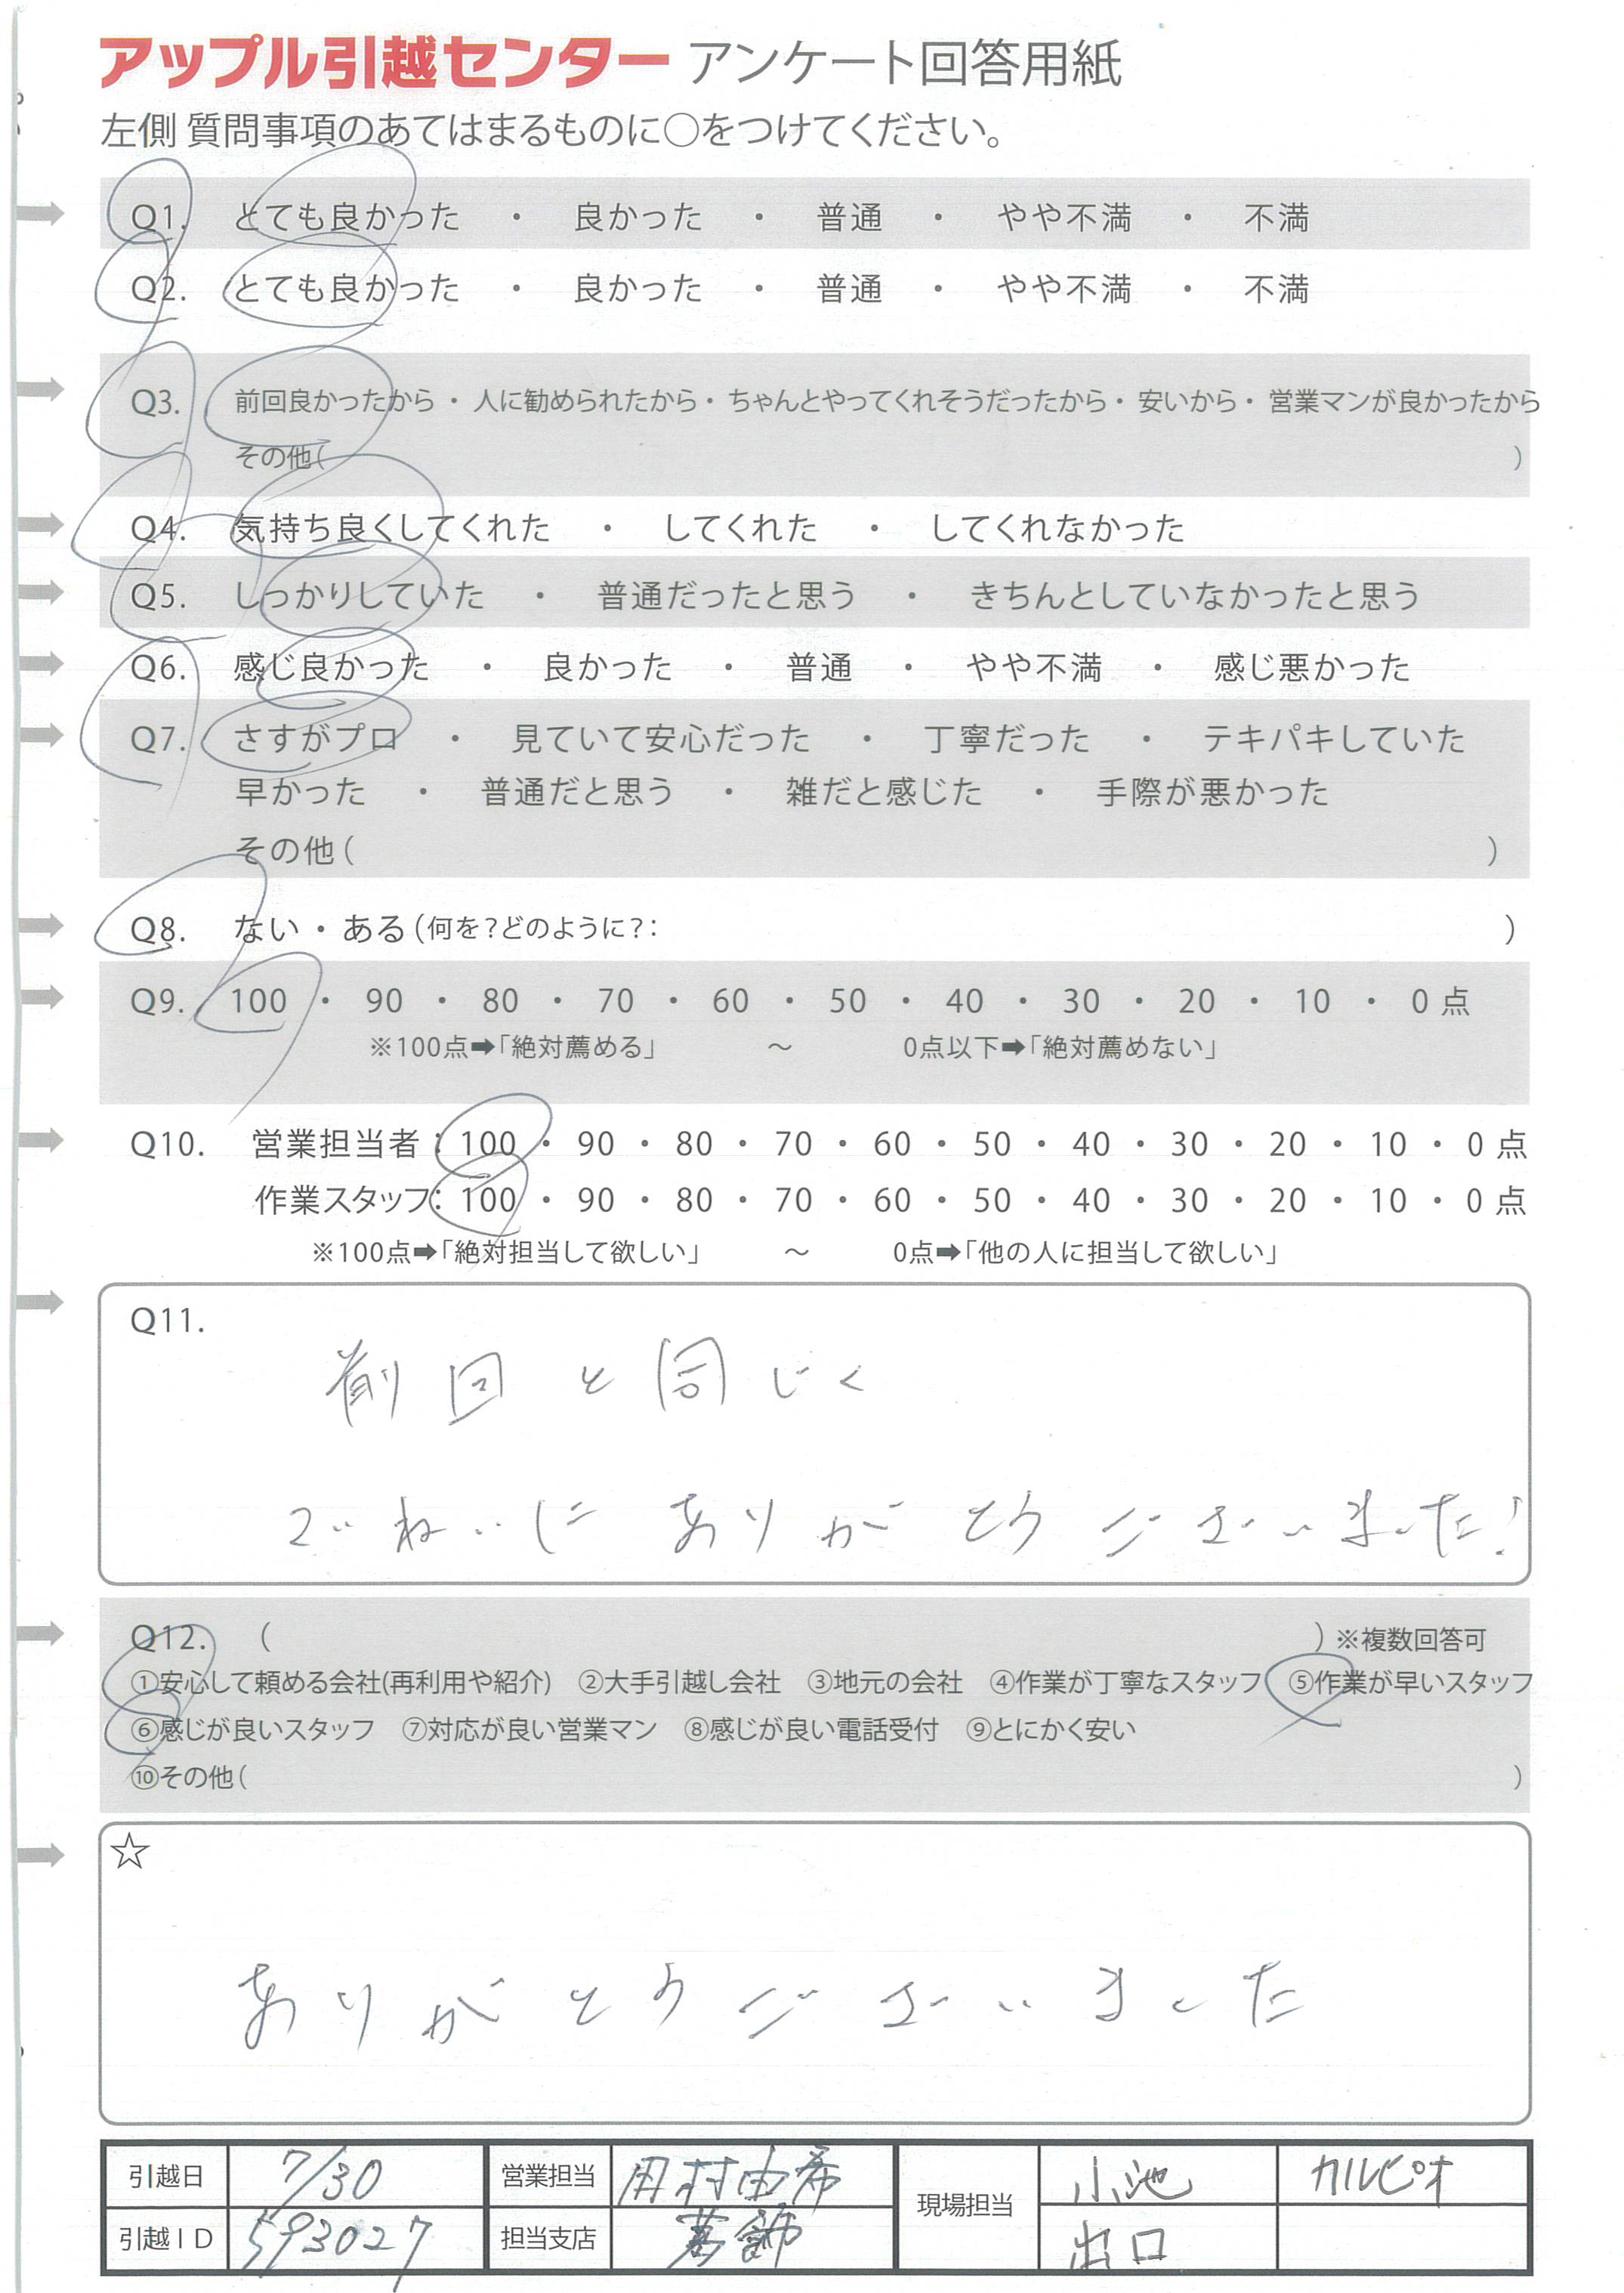 アップル引越センター アンケート回答用紙
左側 質問事項のあてはまるものに○をつけてください。
Q1. とても良かった ・ 良かった ・ 普通 ・ やや不満 ・ 不満
Q2. とても良かった ・ 良かった ・ 普通 ・ やや不満 ・ 不満
Q3. 前回良かったから ・ 人に勧められたから ・ ちゃんとやってくれそうだったから ・ 安いから ・ 営業マンが良かったから
その他( )
Q4. 気持ち良くしてくれた ・ してくれた ・ してくれなかった
Q5. しっかりしていた ・ 普通だったと思う ・ きちんとしていなかったと思う
Q6. 感じ良かった ・ 良かった ・ 普通 ・ やや不満 ・ 感じ悪かった
Q7. さすがプロ ・ 見ていて安心だった ・ 丁寧だった ・ テキパキしていた
早かった ・ 普通だと思う ・ 雑だと感じた ・ 手際が悪かった
その他( )
Q8. ない ・ ある(何を?どのように?: )
Q9. 100 ・ 90 ・ 80 ・ 70 ・ 60 ・ 50 ・ 40 ・ 30 ・ 20 ・ 10 ・ 0 点
※100点➡「絶対薦める」 ～ 0点以下➡「絶対薦めない」
Q10. 営業担当者: 100 ・ 90 ・ 80 ・ 70 ・ 60 ・ 50 ・ 40 ・ 30 ・ 20 ・ 10 ・ 0 点
作業スタッフ: 100 ・ 90 ・ 80 ・ 70 ・ 60 ・ 50 ・ 40 ・ 30 ・ 20 ・ 10 ・ 0 点
※100点➡「絶対担当して欲しい」 ～ 0点➡「他の人に担当して欲しい」
Q11.
前回と同じく
ていねいにありがとうございました!
Q12. ( ) ※複数回答可
①安心して頼める会社(再利用や紹介) ②大手引越し会社 ③地元の会社 ④作業が丁寧なスタッフ ⑤作業が早いスタッフ
⑥感じが良いスタッフ ⑦対応が良い営業マン ⑧感じが良い電話受付 ⑨とにかく安い
⑩その他( )
☆
ありがとうございました
引越日 7/30 営業担当 村由希 現場担当 小池 カルピオ
引越ID 593027 担当支店 葛飾 出口